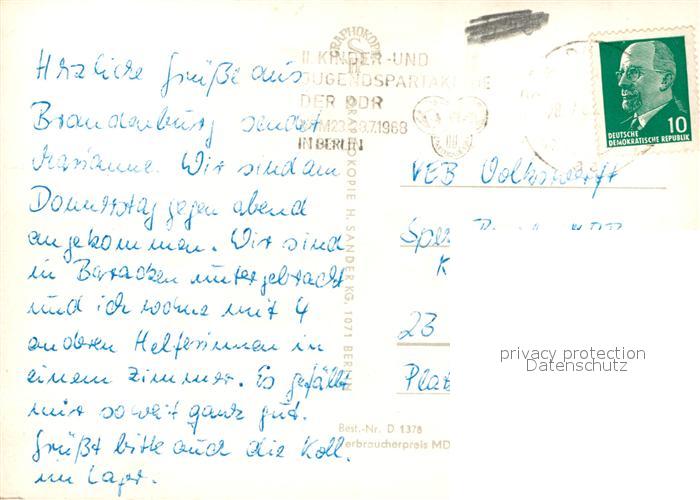 Herzliche Grüße aus
Brandenburg sendet
Marianne. Wir sind am
Donnerstag gegen abend
angekommen. Wir sind
in Baracken untergebracht
und ich wohne mit 4
anderen Helferinnen in
einem Zimmer. Es gefällt
mir soweit ganz gut.
Grüßt bitte auch die Koll.
im Lager.
GRAPHOKOPIE
II. KINDER-UND
JUGENDSPARTAKIADE
DER DDR
VOM 23.-29.7.1968
IN BERLIN
GRAPHOKOPIE H. SANDER KG, 1071 BERLIN
10
DEUTSCHE
DEMOKRATISCHE REPUBLIK
VEB Volkswerft
23
Best.-Nr. D 1378
erbraucherpreis MD
privacy protection
Datenschutz